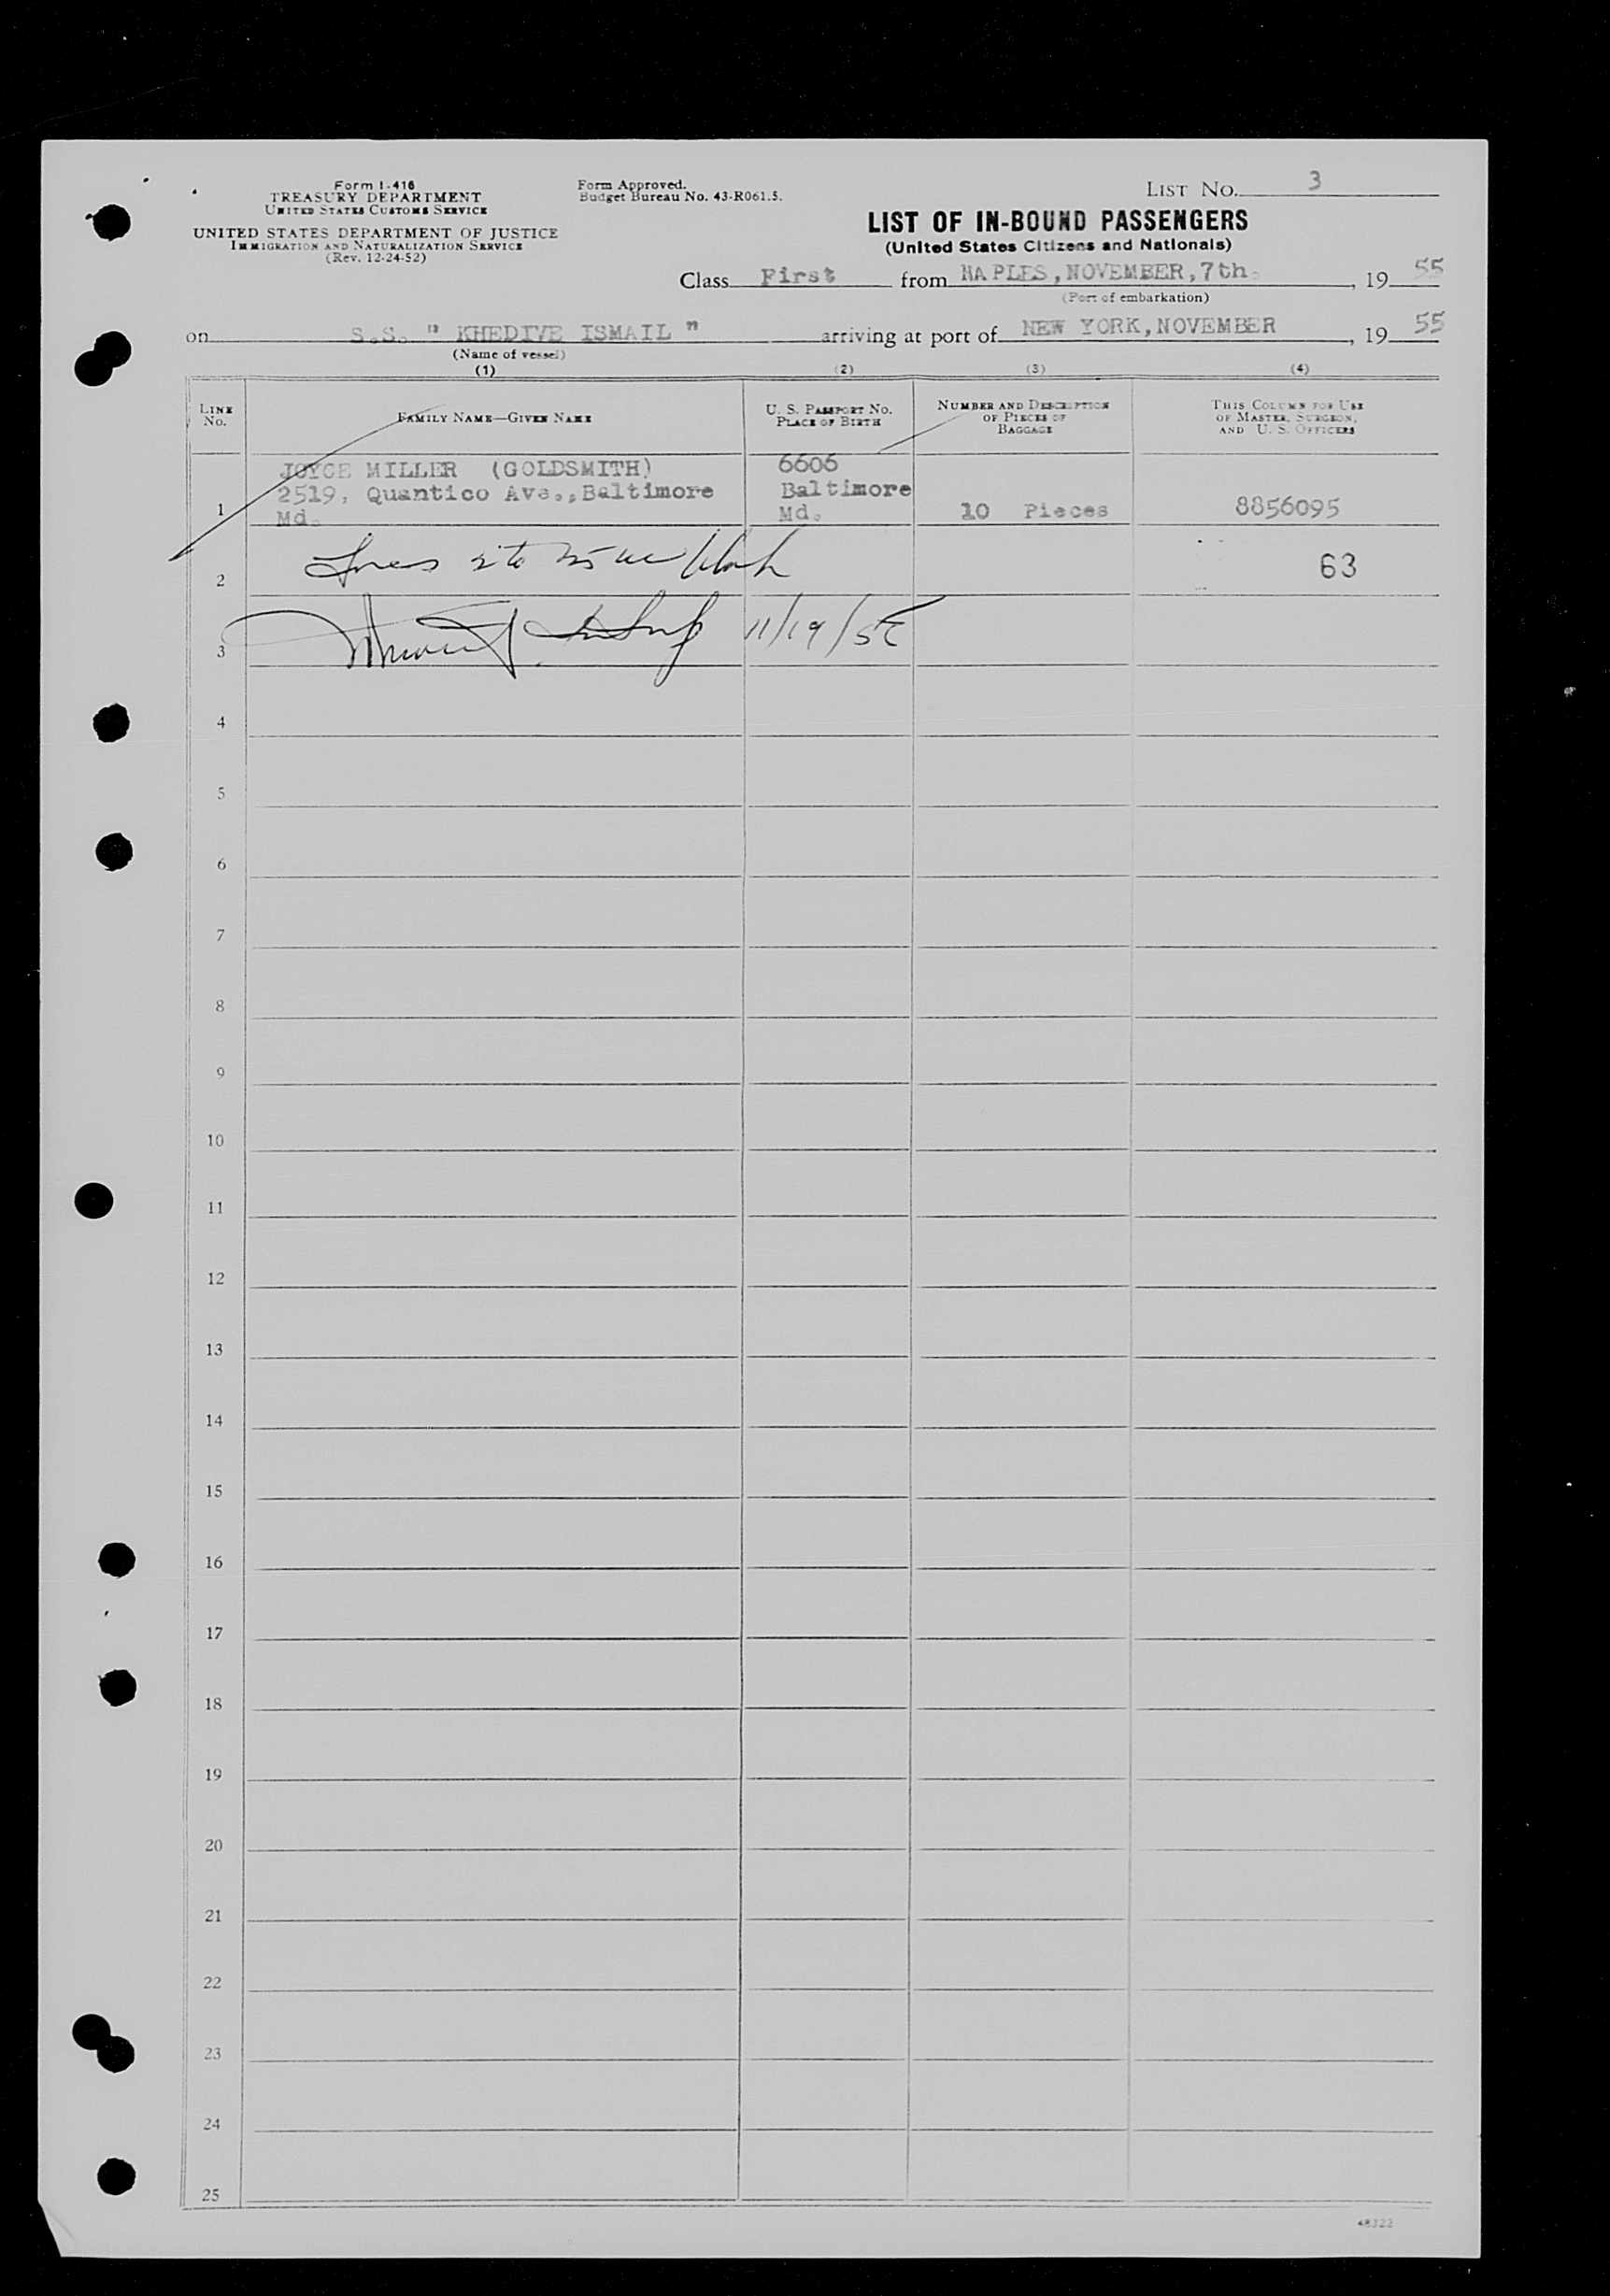 Form I-416
TREASURY DEPARTMENT
UNITED STATES CUSTOMS SERVICE
UNITED STATES DEPARTMENT OF JUSTICE
IMMIGRATION AND NATURALIZATION SERVICE
(Rev. 12-24-52)
Form Approved.
Budget Bureau No. 43-R061.5.
LIST NO. 3
LIST OF IN-BOUND PASSENGERS
(United States Citizens and Nationals)
Class First from NAPLES, NOVEMBER, 7th. , 19 55
(Port of embarkation)
on S.S. " KHEDIVE ISMAIL " arriving at port of NEW YORK, NOVEMBER , 19 55
(Name of vessel)
(1) (2) (3) (4)
LINE No. FAMILY NAME—GIVEN NAME U. S. PASSPORT NO. PLACE OF BIRTH NUMBER AND DESCRIPTION OF PIECES OF BAGGAGE THIS COLUMN FOR USE OF MASTER, SURGEON, AND U. S. OFFICERS
JOYCE MILLER (GOLDSMITH) 6606
2519, Quantico Ave., Baltimore Baltimore
1 Md. Md. 10 Pieces 8856095
2 Lines 2 to 25 63
3 11/19/55
4
5
6
7
8
9
10
11
12
13
14
15
16
17
18
19
20
21
22
23
24
25
48322